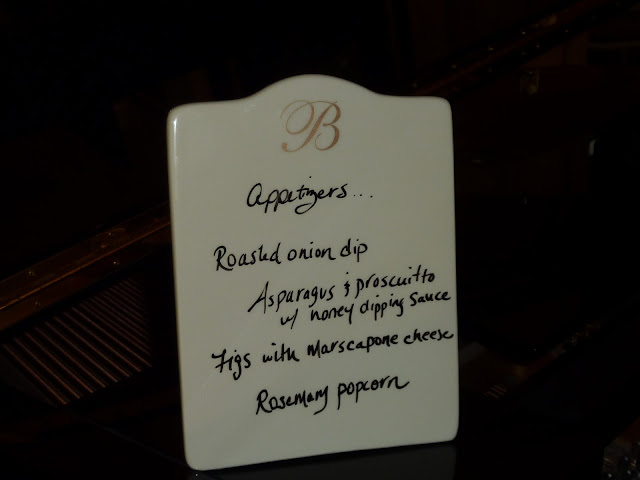 B
Appetizers...
Roasted onion dip
Asparagus & proscuitto
w/ honey dipping sauce
Figs with Marscapone cheese
Rosemary popcorn